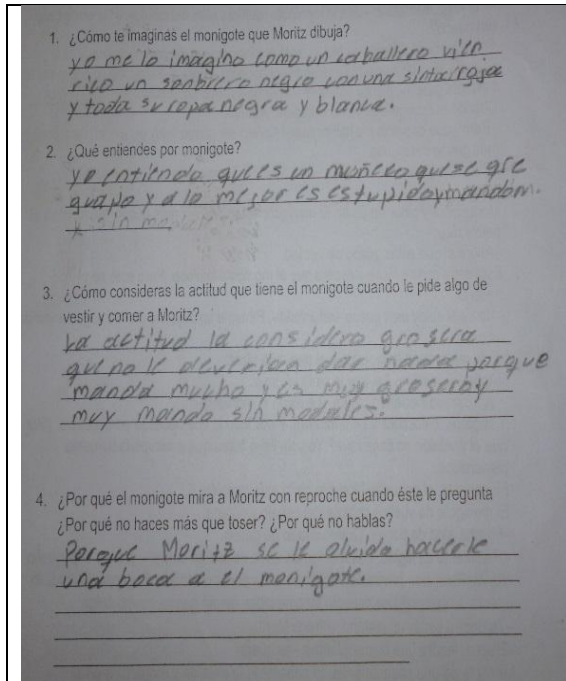 1. ¿Cómo te imaginas el monigote que Moritz dibuja?
yo me lo imagino como un caballero vien
rico un sonbrero negro con una sinta roja
y toda su ropa negra y blanca.
2. ¿Qué entiendes por monigote?
yo entiendo que es un muñeco que se cre
guapo y a lo mejor es estupido y mandon.
y sin
3. ¿Cómo consideras la actitud que tiene el monigote cuando le pide algo de
vestir y comer a Moritz?
La actitud la considero grosera
que no le deverian dar nada porque
manda mucho y es muy grosero y
muy mando sin modales.
4. ¿Por qué el monigote mira a Moritz con reproche cuando éste le pregunta
¿Por qué no haces más que toser? ¿Por qué no hablas?
Porque Moritz se le olvido hacerle
una boca a el monigote.